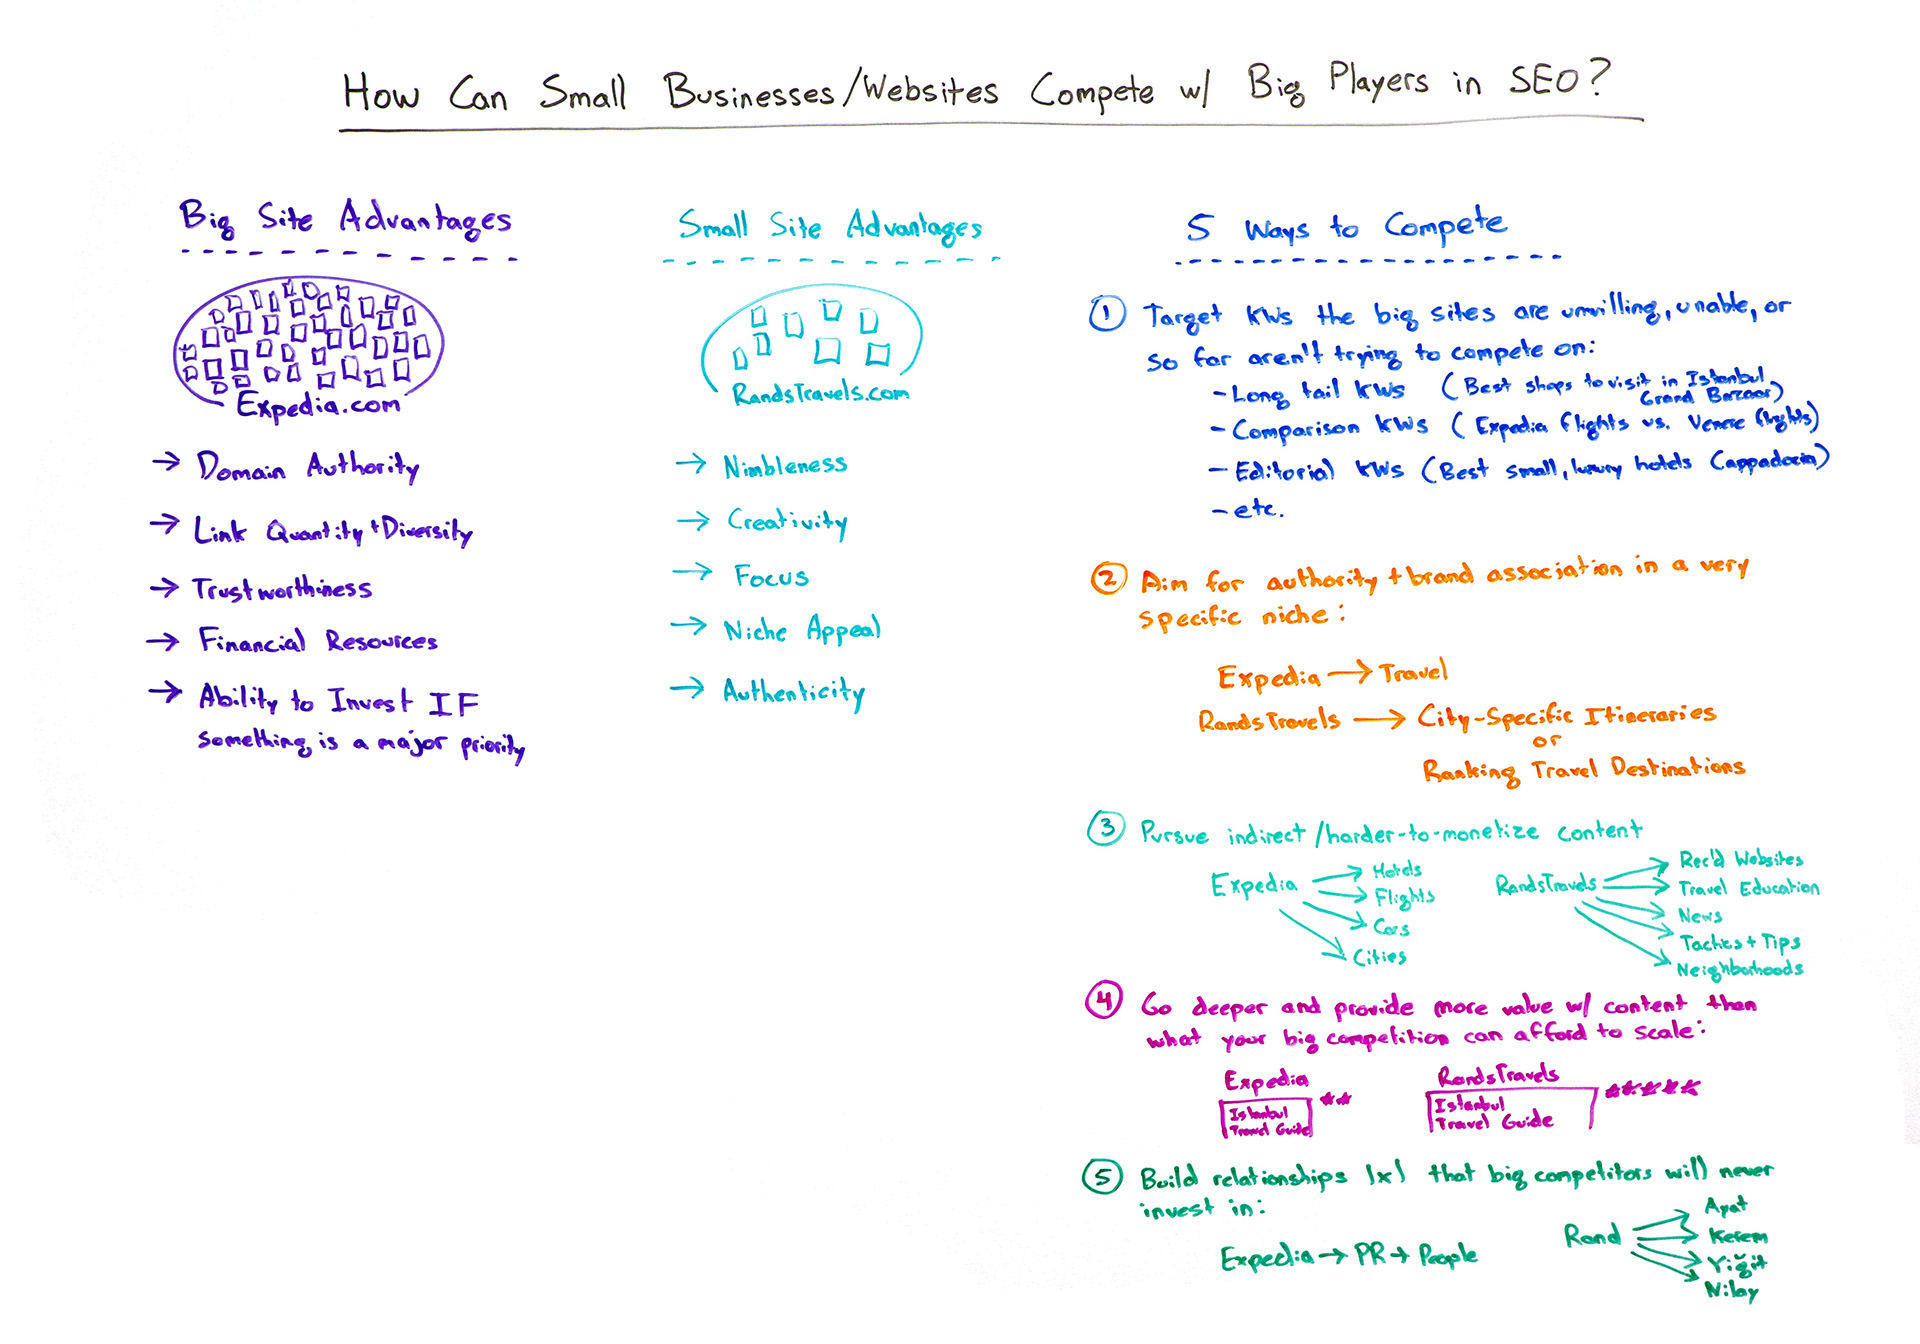 How Can Small Businesses/Websites Compete w/ Big Players in SEO?
Big Site Advantages
Expedia.com
→ Domain Authority
→ Link Quantity + Diversity
→ Trustworthiness
→ Financial Resources
→ Ability to Invest IF
something is a major priority
Small Site Advantages
RandsTravels.com
→ Nimbleness
→ Creativity
→ Focus
→ Niche Appeal
→ Authenticity
5 Ways to Compete
1 Target KWs the big sites are unwilling, unable, or
so far aren't trying to compete on:
- Long tail KWs (Best shops to visit in Istanbul
Grand Bazaar)
- Comparison KWs (Expedia flights vs. Venere flights)
- Editorial KWs (Best small, luxury hotels Cappadocia)
- etc.
2 Aim for authority + brand association in a very
specific niche:
Expedia → Travel
RandsTravels → City-Specific Itineraries
or
Ranking Travel Destinations
3 Pursue indirect/harder-to-monetize content
Expedia
Hotels
Flights
Cars
Cities
RandsTravels
Rec'd Websites
Travel Education
News
Tactics + Tips
Neighborhoods
4 Go deeper and provide more value w/ content than
what your big competition can afford to scale:
Expedia
Istanbul
Travel Guide
RandsTravels
Istanbul
Travel Guide
5 Build relationships 1x1 that big competitors will never
invest in:
Expedia → PR → People
Rand
Kerem
Yiğit
Nilay